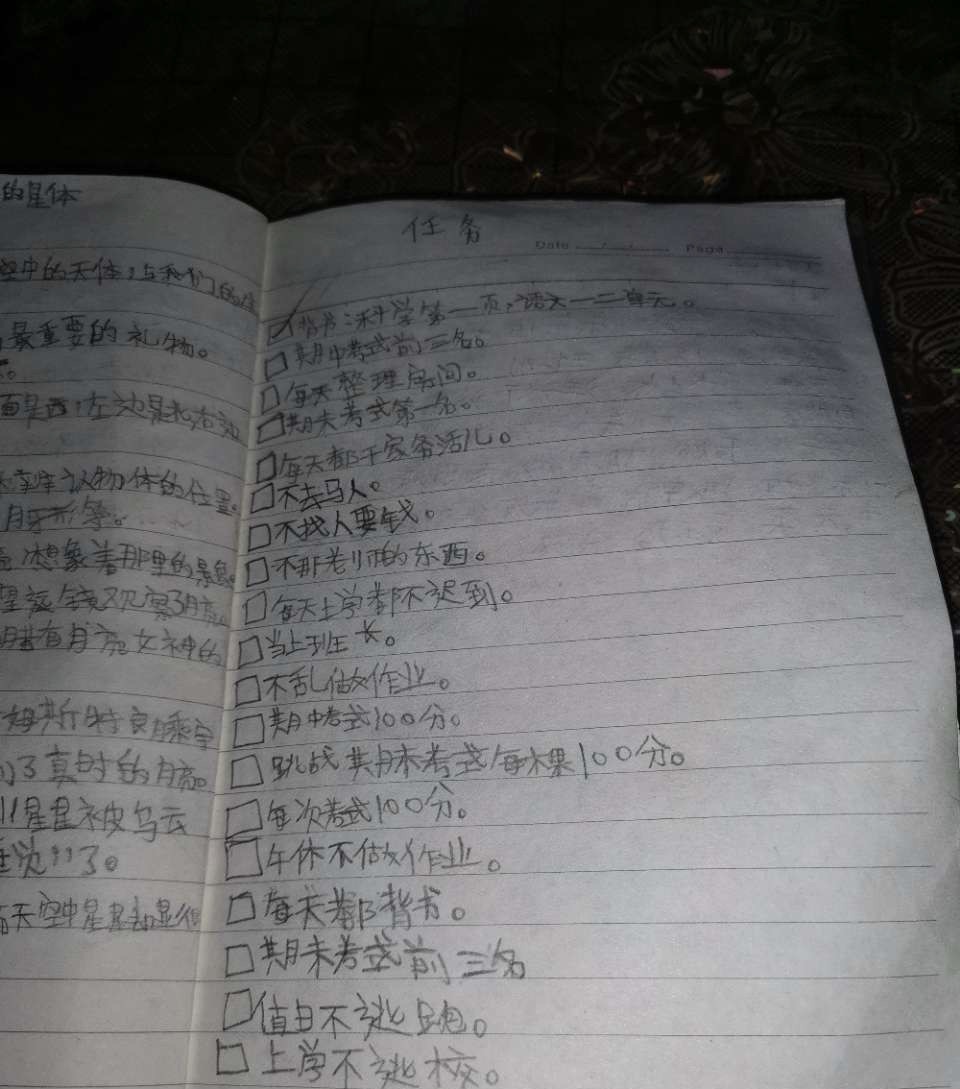 的星体
空中的天体,与我们的
最重要的礼物。
面是西,左边是北,右边
认物体的位置。
月牙形等。
想象着那里的景色
月亮女神的
了真时的月亮。
星星被乌云
觉”了。
天空中星星却显得
任务
Date / / Page
背书:科学第一页,语文一二单元。
期中考式前三名。
每天整理房间。
期末考式第一名。
每天都干家务活儿。
不去马人。
不找人要钱。
不那老师的东西。
每天上学都不迟到。
当上班长。
不乱做作业。
期中考式100分。
跳战期末考式每木果100分。
每次考式100分。
午休不做作业。
每天都背书。
期末考式前三名
值日不逃跑。
上学不逃校。